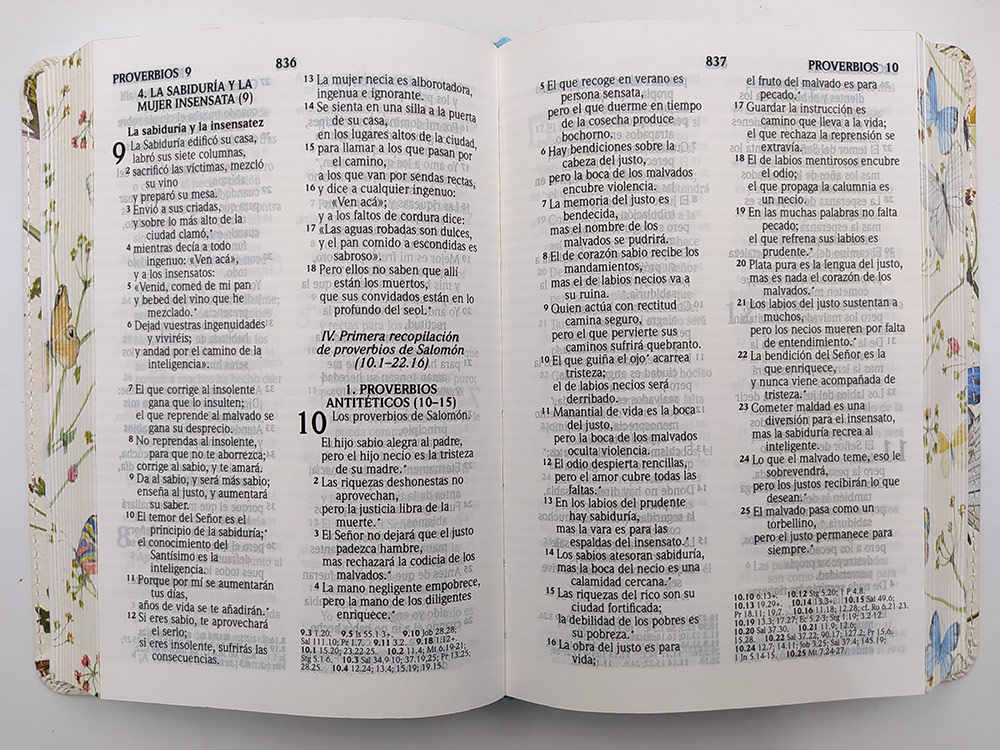 PROVERBIOS 9
836
4. LA SABIDURÍA Y LA
MUJER INSENSATA (9)
La sabiduría y la insensatez
9 La Sabiduría edificó su casa,
labró sus siete columnas,
2 sacrificó las víctimas, mezcló
su vino
y preparó su mesa.
3 Envió a sus criadas,
y sobre lo más alto de la
ciudad clamó,ʼ
4 mientras decía a todo
ingenuo: «Ven acá»,
y a los insensatos:
5 «Venid, comed de mi pan
y bebed del vino que he
mezclado.ʼ
6 Dejad vuestras ingenuidades
y viviréis;
y andad por el camino de la
inteligencia».
7 El que corrige al insolente
gana que lo insulten;
el que reprende al malvado se
gana su desprecio.
8 No reprendas al insolente,
para que no te aborrezca;
corrige al sabio, y te amará.
9 Da al sabio, y será más sabio;
enseña al justo, y aumentará
su saber.
10 El temor del Señor es el
principio de la sabiduría;ʼ
el conocimiento del
Santísimo es la
inteligencia.
11 Porque por mí se aumentarán
tus días,
años de vida se te añadirán.ʼ
12 Si eres sabio, te aprovechará
el serlo;
si eres insolente, sufrirás las
consecuencias.
13 La mujer necia es alborotadora,
ingenua e ignorante.
14 Se sienta en una silla a la puerta
de su casa,
en los lugares altos de la ciudad,
15 para llamar a los que pasan por
el camino,
a los que van por sendas rectas,
16 y dice a cualquier ingenuo:
«Ven acá»;
y a los faltos de cordura dice:
17 «Las aguas robadas son dulces,
y el pan comido a escondidas es
sabroso».
18 Pero ellos no saben que allí
están los muertos,
que sus convidados están en lo
profundo del seol.ʼ
IV. Primera recopilación
de proverbios de Salomón
(10.1–22.16)
1. PROVERBIOS
ANTITÉTICOS (10–15)
10 Los proverbios de Salomón.
El hijo sabio alegra al padre,
pero el hijo necio es la tristeza
de su madre.ʼ
2 Las riquezas deshonestas no
aprovechan,
pero la justicia libra de la
muerte.ʼ
3 El Señor no dejará que el justo
padezca hambre,
mas rechazará la codicia de los
malvados.ʼ
4 La mano negligente empobrece,
pero la mano de los diligentes
enriquece.ʼ
9.3 1.20. 9.5 Is 55.1-3+. 9.10 Job 28.28;
Sal 111.10; Pr 1.7. 9.11 3.2. 9.18 1.12+.
10.1 15.20; 23.22-25. 10.2 11.4; Mt 6.19-21;
Stg 5.1-6. 10.3 Sal 34.9-10; 37.19,25; Pr 13.25;
28.25. 10.4 12.24; 13.4; 15.19; 19.15.
837
PROVERBIOS 10
5 El que recoge en verano es
persona sensata,
pero el que duerme en tiempo
de la cosecha produce
bochorno.
6 Hay bendiciones sobre la
cabeza del justo,
pero la boca de los malvados
encubre violencia.
7 La memoria del justo es
bendecida,
mas el nombre de los
malvados se pudrirá.
8 El de corazón sabio recibe los
mandamientos,
mas el de labios necios va a
su ruina.
9 Quien actúa con rectitud
camina seguro,
pero el que pervierte sus
caminos sufrirá quebranto.
10 El que guiña el ojoʼ acarrea
tristeza;
el de labios necios será
derribado.
11 Manantial de vida es la boca
del justo,
pero la boca de los malvados
oculta violencia.
12 El odio despierta rencillas,
pero el amor cubre todas las
faltas.ʼ
13 En los labios del prudente
hay sabiduría,
mas la vara es para las
espaldas del insensato.ʼ
14 Los sabios atesoran sabiduría,
mas la boca del necio es una
calamidad cercana.ʼ
15 Las riquezas del rico son su
ciudad fortificada;
la debilidad de los pobres es
su pobreza.ʼ
16 La obra del justo es para
vida;
el fruto del malvado es para
pecado.ʼ
17 Guardar la instrucción es
camino que lleva a la vida;
el que rechaza la reprensión se
extravía.
18 El de labios mentirosos encubre
el odio;
el que propaga la calumnia es
un necio.
19 En las muchas palabras no falta
pecado;
el que refrena sus labios es
prudente.ʼ
20 Plata pura es la lengua del justo,
mas es nada el corazón de los
malvados.ʼ
21 Los labios del justo sustentan a
muchos,
pero los necios mueren por falta
de entendimiento.ʼ
22 La bendición del Señor es la
que enriquece,
y nunca viene acompañada de
tristeza.ʼ
23 Cometer maldad es una
diversión para el insensato,
mas la sabiduría recrea al
inteligente.
24 Lo que el malvado teme, eso le
sobrevendrá,
pero los justos recibirán lo que
desean.ʼ
25 El malvado pasa como un
torbellino,
pero el justo permanece para
siempre.ʼ
10.10 6.13+. 10.12 Stg 5.20; 1 P 4.8.
10.13 19.29+. 10.14 13.3+. 10.15 Sal 49.6;
Pr 18.11; 19.7. 10.16 11.18; 12.28; cf. Ro 6.21-23.
10.19 13.3; 17.27; Ec 5.2-3; Stg 1.19; 3.2.
10.20 Sal 37.30. 10.21 11.9; 12.6;
15.28. 10.22 Sal 37.22; 90.17; 127.2; Pr 15.6.
10.24 12.7; 14.11; Job 3.25; Sal 37.4; 145.19;
1 Jn 5.14-15. 10.25 Mt 7.24-27.